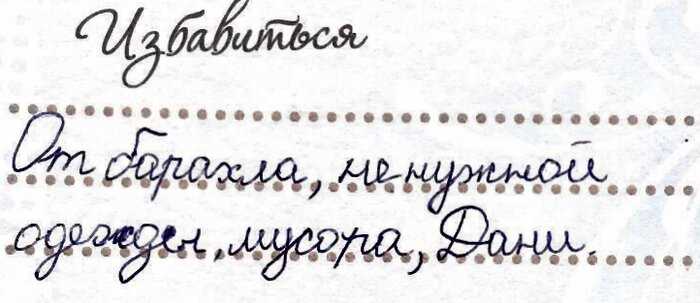 Избавиться
От барахла, не нужной
одежды, мусора, Дани.